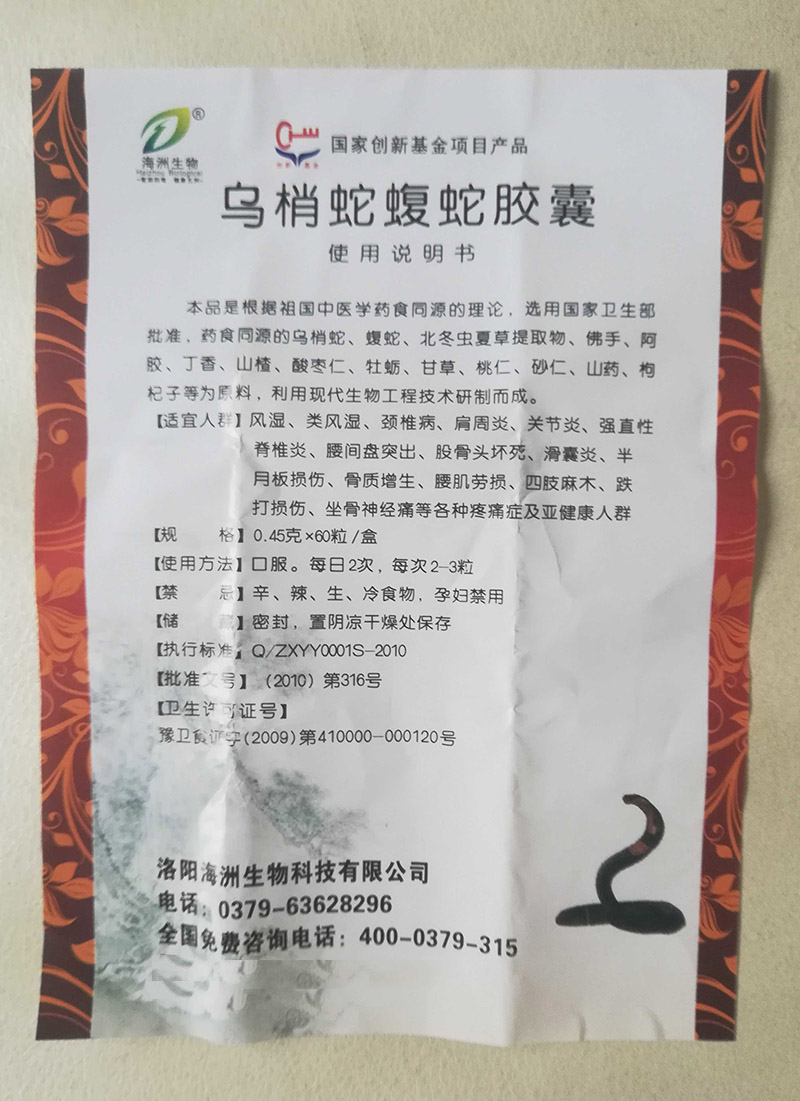 海洲生物
Haizhou Biological
国家创新基金项目产品
乌梢蛇蝮蛇胶囊
使用说明书
本品是根据祖国中医学药食同源的理论，选用国家卫生部
批准，药食同源的乌梢蛇、蝮蛇、北冬虫夏草提取物、佛手、阿
胶、丁香、山楂、酸枣仁、牡蛎、甘草、桃仁、砂仁、山药、枸
杞子等为原料，利用现代生物工程技术研制而成。
【适宜人群】风湿、类风湿、颈椎病、肩周炎、关节炎、强直性
脊椎炎、腰间盘突出、股骨头坏死、滑囊炎、半
月板损伤、骨质增生、腰肌劳损、四肢麻木、跌
打损伤、坐骨神经痛等各种疼痛症及亚健康人群
【规 格】0.45克×60粒/盒
【使用方法】口服。每日2次，每次2-3粒
【禁 忌】辛、辣、生、冷食物，孕妇禁用
【储 藏】密封，置阴凉干燥处保存
【执行标准】Q/ZXYY0001S-2010
【批准文号】（2010）第316号
【卫生许可证号】
豫卫食证字(2009)第410000-000120号
洛阳海洲生物科技有限公司
电话：0379-63628296
全国免费咨询电话：400-0379-315